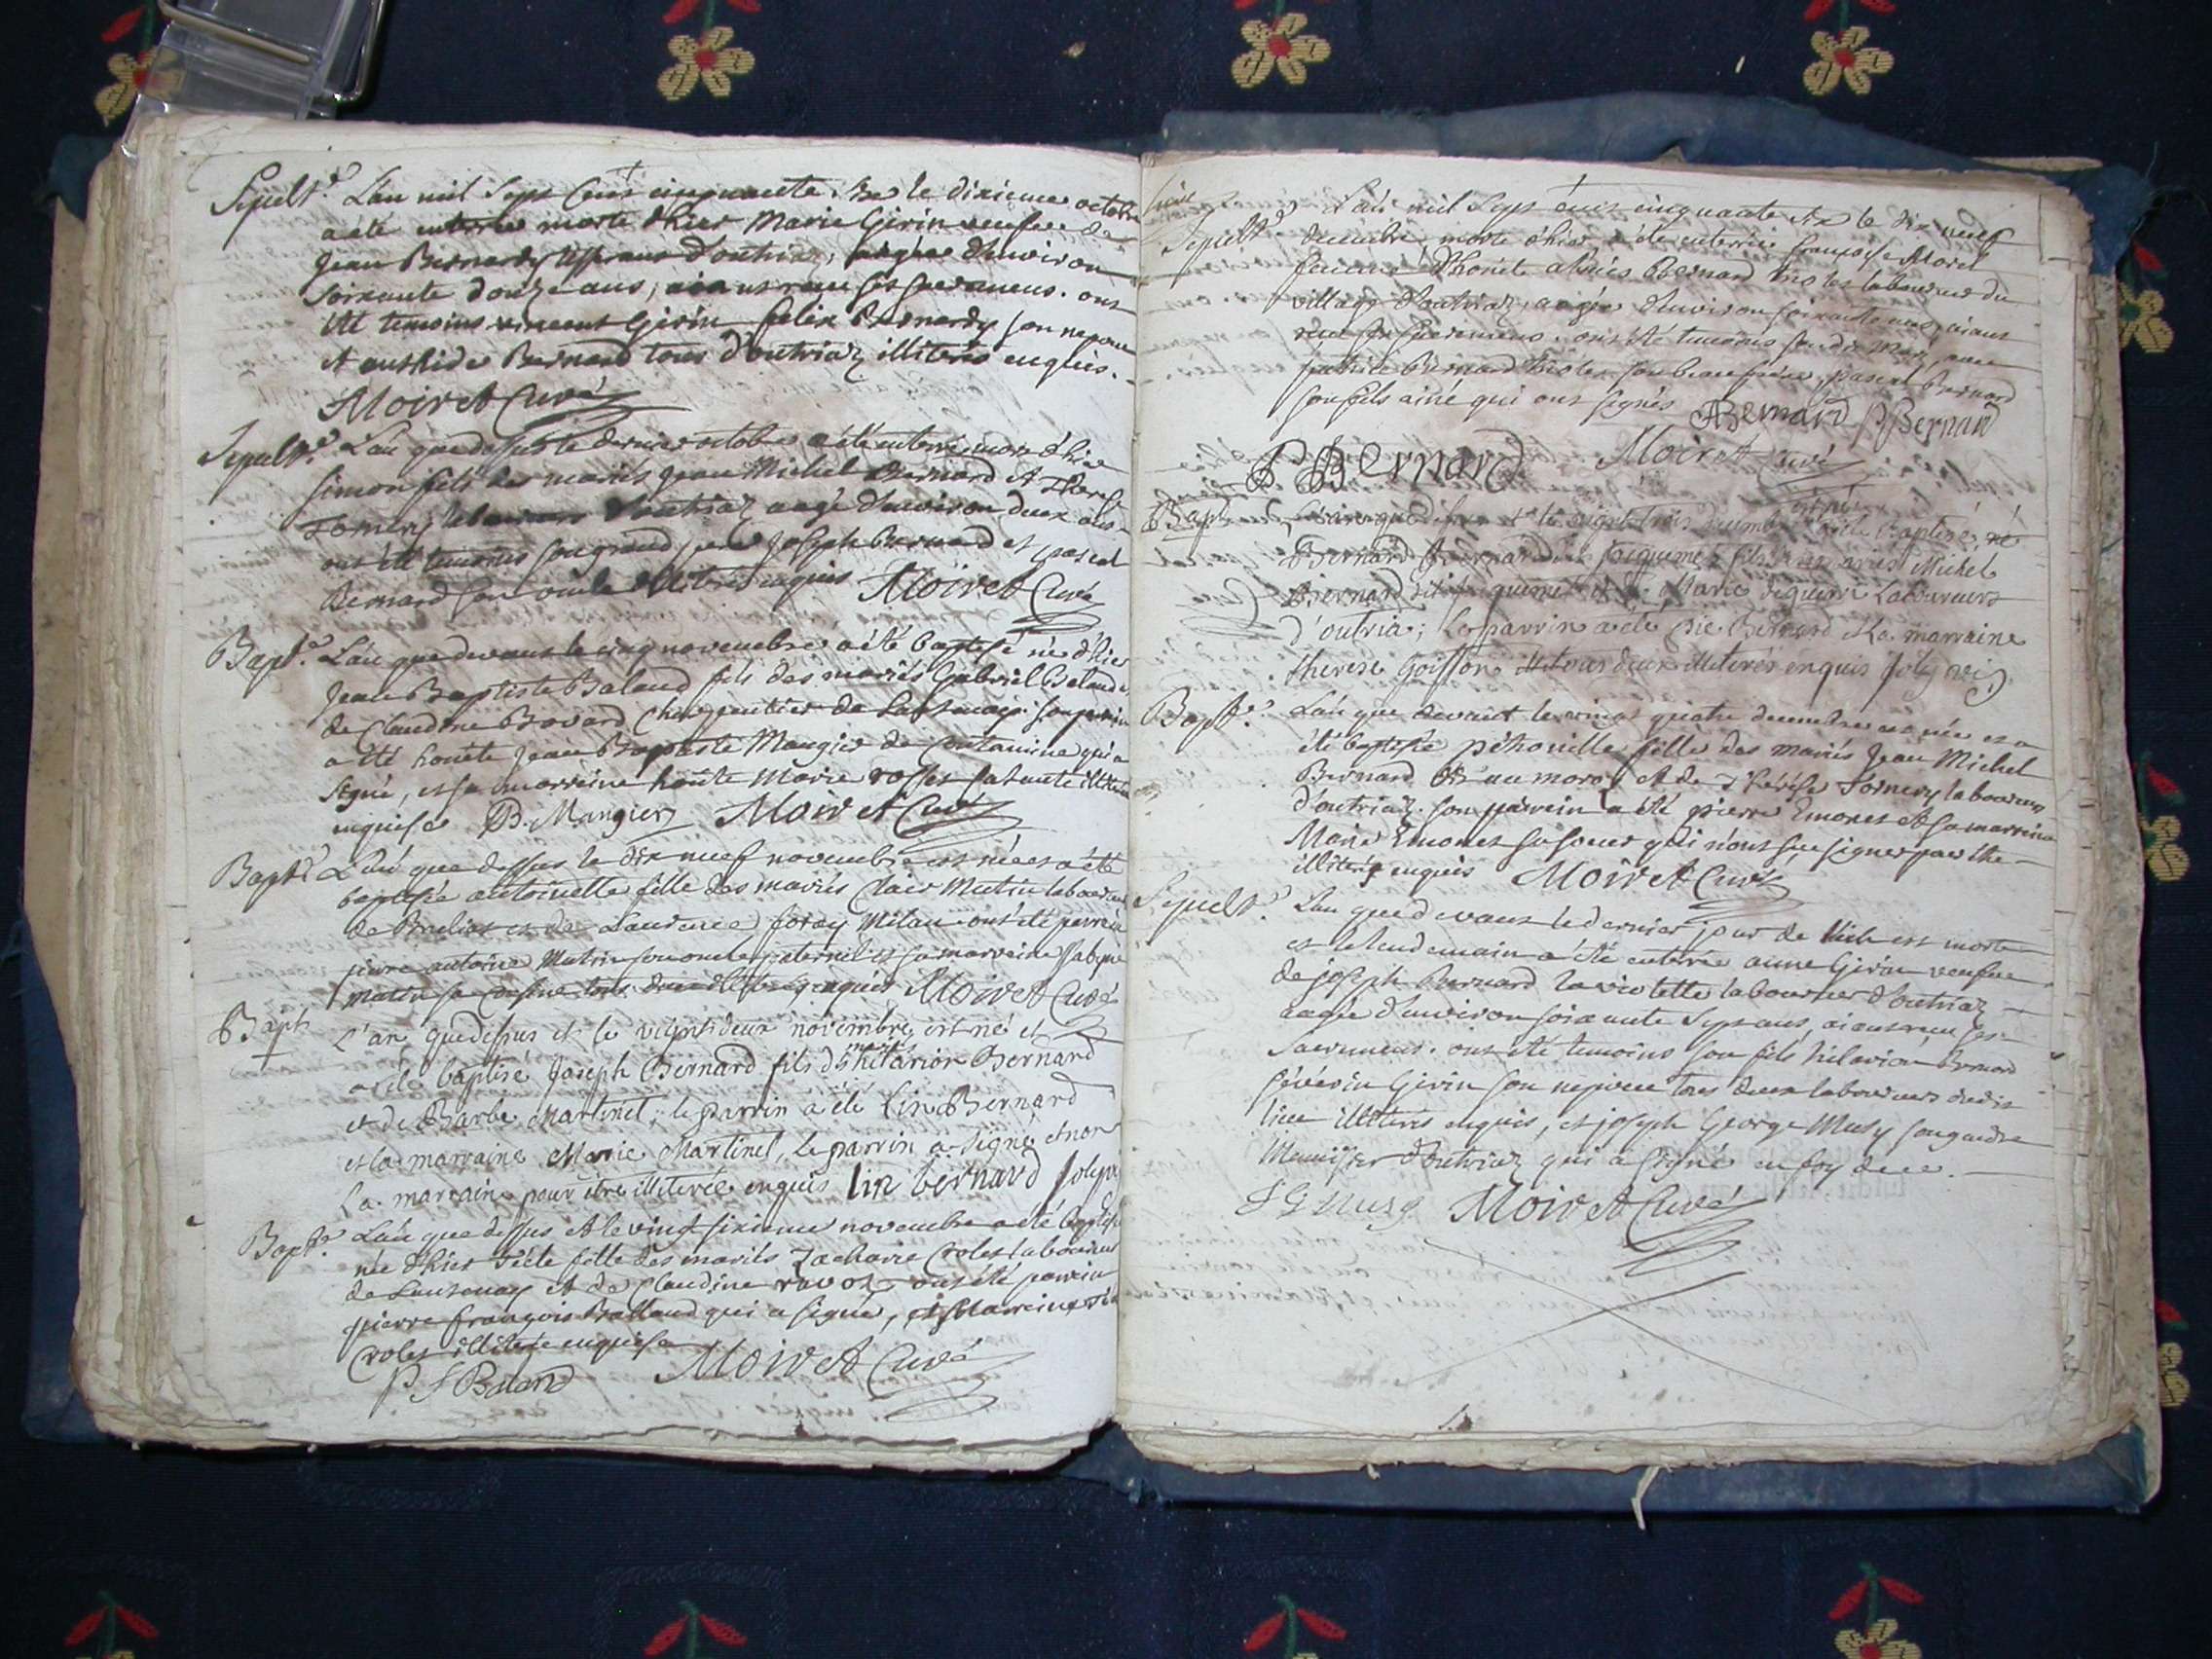 Sepult.e L'an mil Sept Cens cinquante six le dixieme octobre
a été enterrée morte d'hier Marie Girin veufve de
Jean Bernardy d'outriaz, aagée d'environ
soixante douze ans, aiant receu ses sacremens. ont
été temoins vincent Girin felix Bernardy son nepveu
et Bernard tous d'outriaz illiterés enquis.
Moiret Curé
Sepult.e L'an que dessus le dernier octobre a été enterré mort d'hier
simon fils des mariés Jean Michel Bernard et Therese
Fornery laboureurs d'outriaz aagé d'environ deux ans
ont été temoins son grand pere Joseph Bernard et pascal
Bernard son oncle illiterés enquis Moiret Curé
Bapt.e L'an que devant le cinq novembre a été baptisé né d'hier
Jean Baptiste Baland fils des mariés Gabriel Baland
de Claudine Bovard Charpentier de Lantenay. son parrin
a été honête Jean Baptiste Mangier de Contamine qui a
signé, et sa marreine honête Marie rosset sa tante illiterée
enquise B. Mangier Moiret Curé
Bapt.e L'an que dessus le dix neuf novembre est née et a été
baptisée antoinette fille des mariés Clair Mutin laboureur
de et de Laurence Milan ont été parrein
pierre antoine Mutin son oncle paternel et sa marreine
Mutin sa cousine tous deux illiterés enquis Moiret Curé
Bapt. L'an que dessus et le vingt deux novembre est né et
a été baptisé Joseph Bernard fils des mariés hilarion Bernard
et de Barbe Martinet; le parrin a été lin Bernard
et la marraine Marie Martinet, le parrin a signé et non
La marraine pour être illiterée enquis lin bernard
Bapt.e L'an que dessus et le vingt sixieme novembre a été baptisée
née d'hier fille des mariés Zacharie Crolet laboureur
de Lantenay et de Claudine ravoz ont été parrein
pierre françois Balland qui a signé, et Marreine
Crolet illiterée enquise
P f Baland Moiret Curé
L'an mil Sept cens cinquante six le dix neuf
Sepult.e decembre, morte d'hier, a été enterrée françoise Morel
femme d'honête Bernard laboureur du
village d'outriaz, aagée d'environ soixante ans, aiant
receu ses sacremens. ont été temoins son dit Mari,
Bernard son beau frere, pascal Bernard
son fils ainé qui ont signés ABernard PBernard
P Bernard Moiret Curé
Bapt. L'an que dessus et le vingt trois decembre est né
a été baptisé
Bernard Bernard fils des mariés Michel
Bernard dit et de Marie Laboureurs
d'outria; Le parrin a été pie Bernard et la marraine
therese Goiffon tous deux illiterés enquis
Bapt.e L'an que devant le vingt quatre decembre est née et a
été baptisée fille des mariés Jean Michel
Bernard et de Thérése Fornery laboureurs
d'outriaz. son parrein a été pierre Emonet et sa marreine
Marie Emonet sa soeur qui n'ont sçu signer pour être
illiterés enquis Moiret Curé
Sepult.e L'an que devant le dernier jour de est morte
et le lendemain a été enterrée anne Girin veufve
de joseph Bernard la violette laboureur d'outriaz
aagée d'environ soixante Sept ans, aiant receu ses
Sacremens. ont été temoins son fils hilarion Bernard
Sévérin Girin son nepveu tous deux laboureurs dudit
lieu illiterés enquis, et joseph George Musy son gendre
Meunisier d'outriaz qui a signé en foy de ce.
J G Musy Moiret Curé